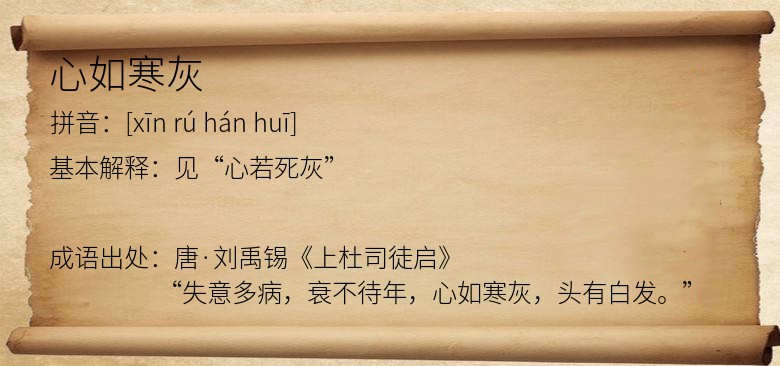 心如寒灰
拼音：[xīn rú hán huī]
基本解释：见“心若死灰”
成语出处：唐·刘禹锡《上杜司徒启》
“失意多病，衰不待年，心如寒灰，头有白发。”